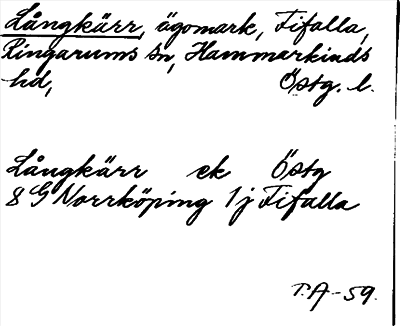 Långkärr, ägomark, Fifalla,
Ringarums sn, Hammarkinds
hd, Östg. l.
Långkärr ek Östg
8 G Norrköping 1 j Fifalla
T.A-59.